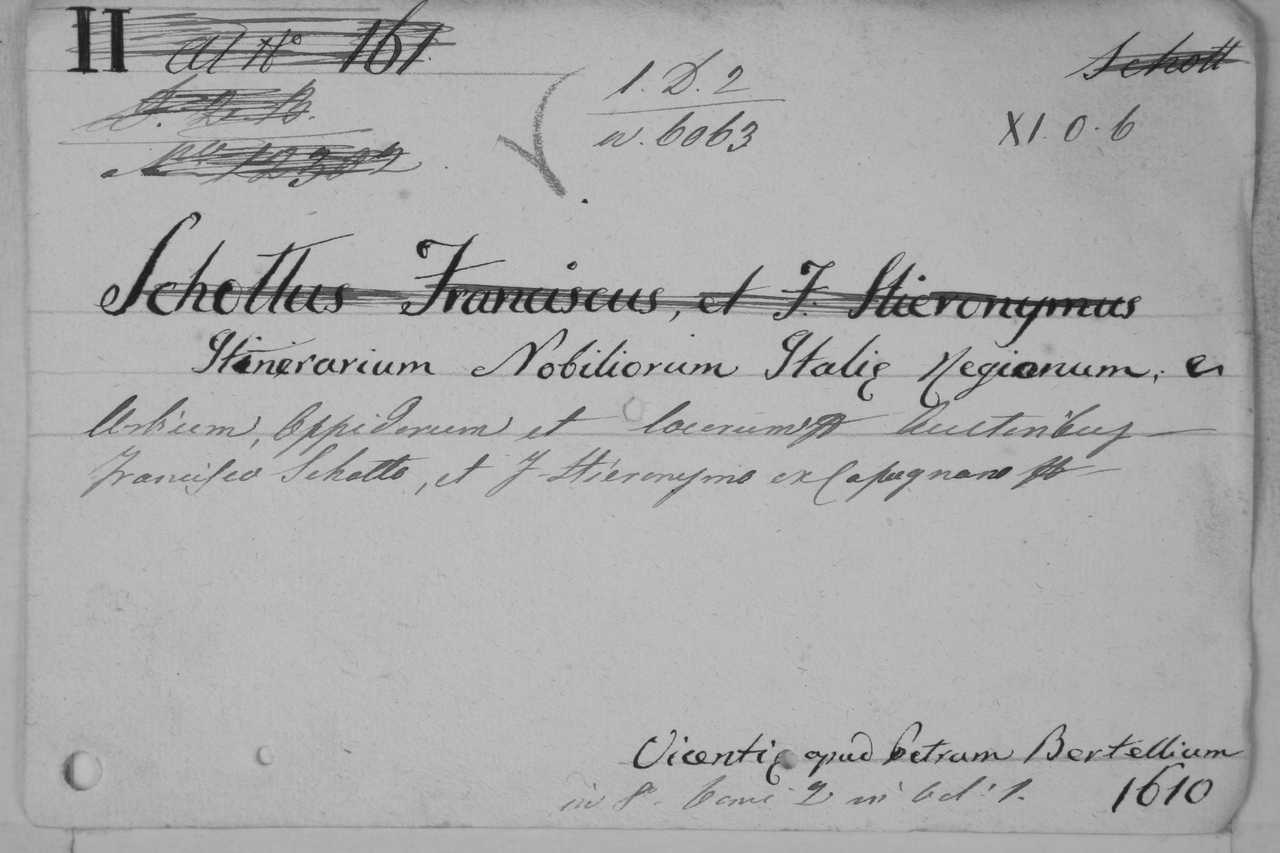 II Al Nº 161.
Schott
1. D. 2
n. 6063
XI. O. 6
Nº 12382
Schottus Franciscus, et F. Hieronymus
Itinerarium Nobiliorum Italię Regionum, et
Urbium, Oppidorum et locorum Auctoribus
Francisco Schotto, et F. Hieronymo ex Capugnano
Vicentię apud Petrum Bertellium
in 8º. Tomi 2 in Vol. 1.
1610